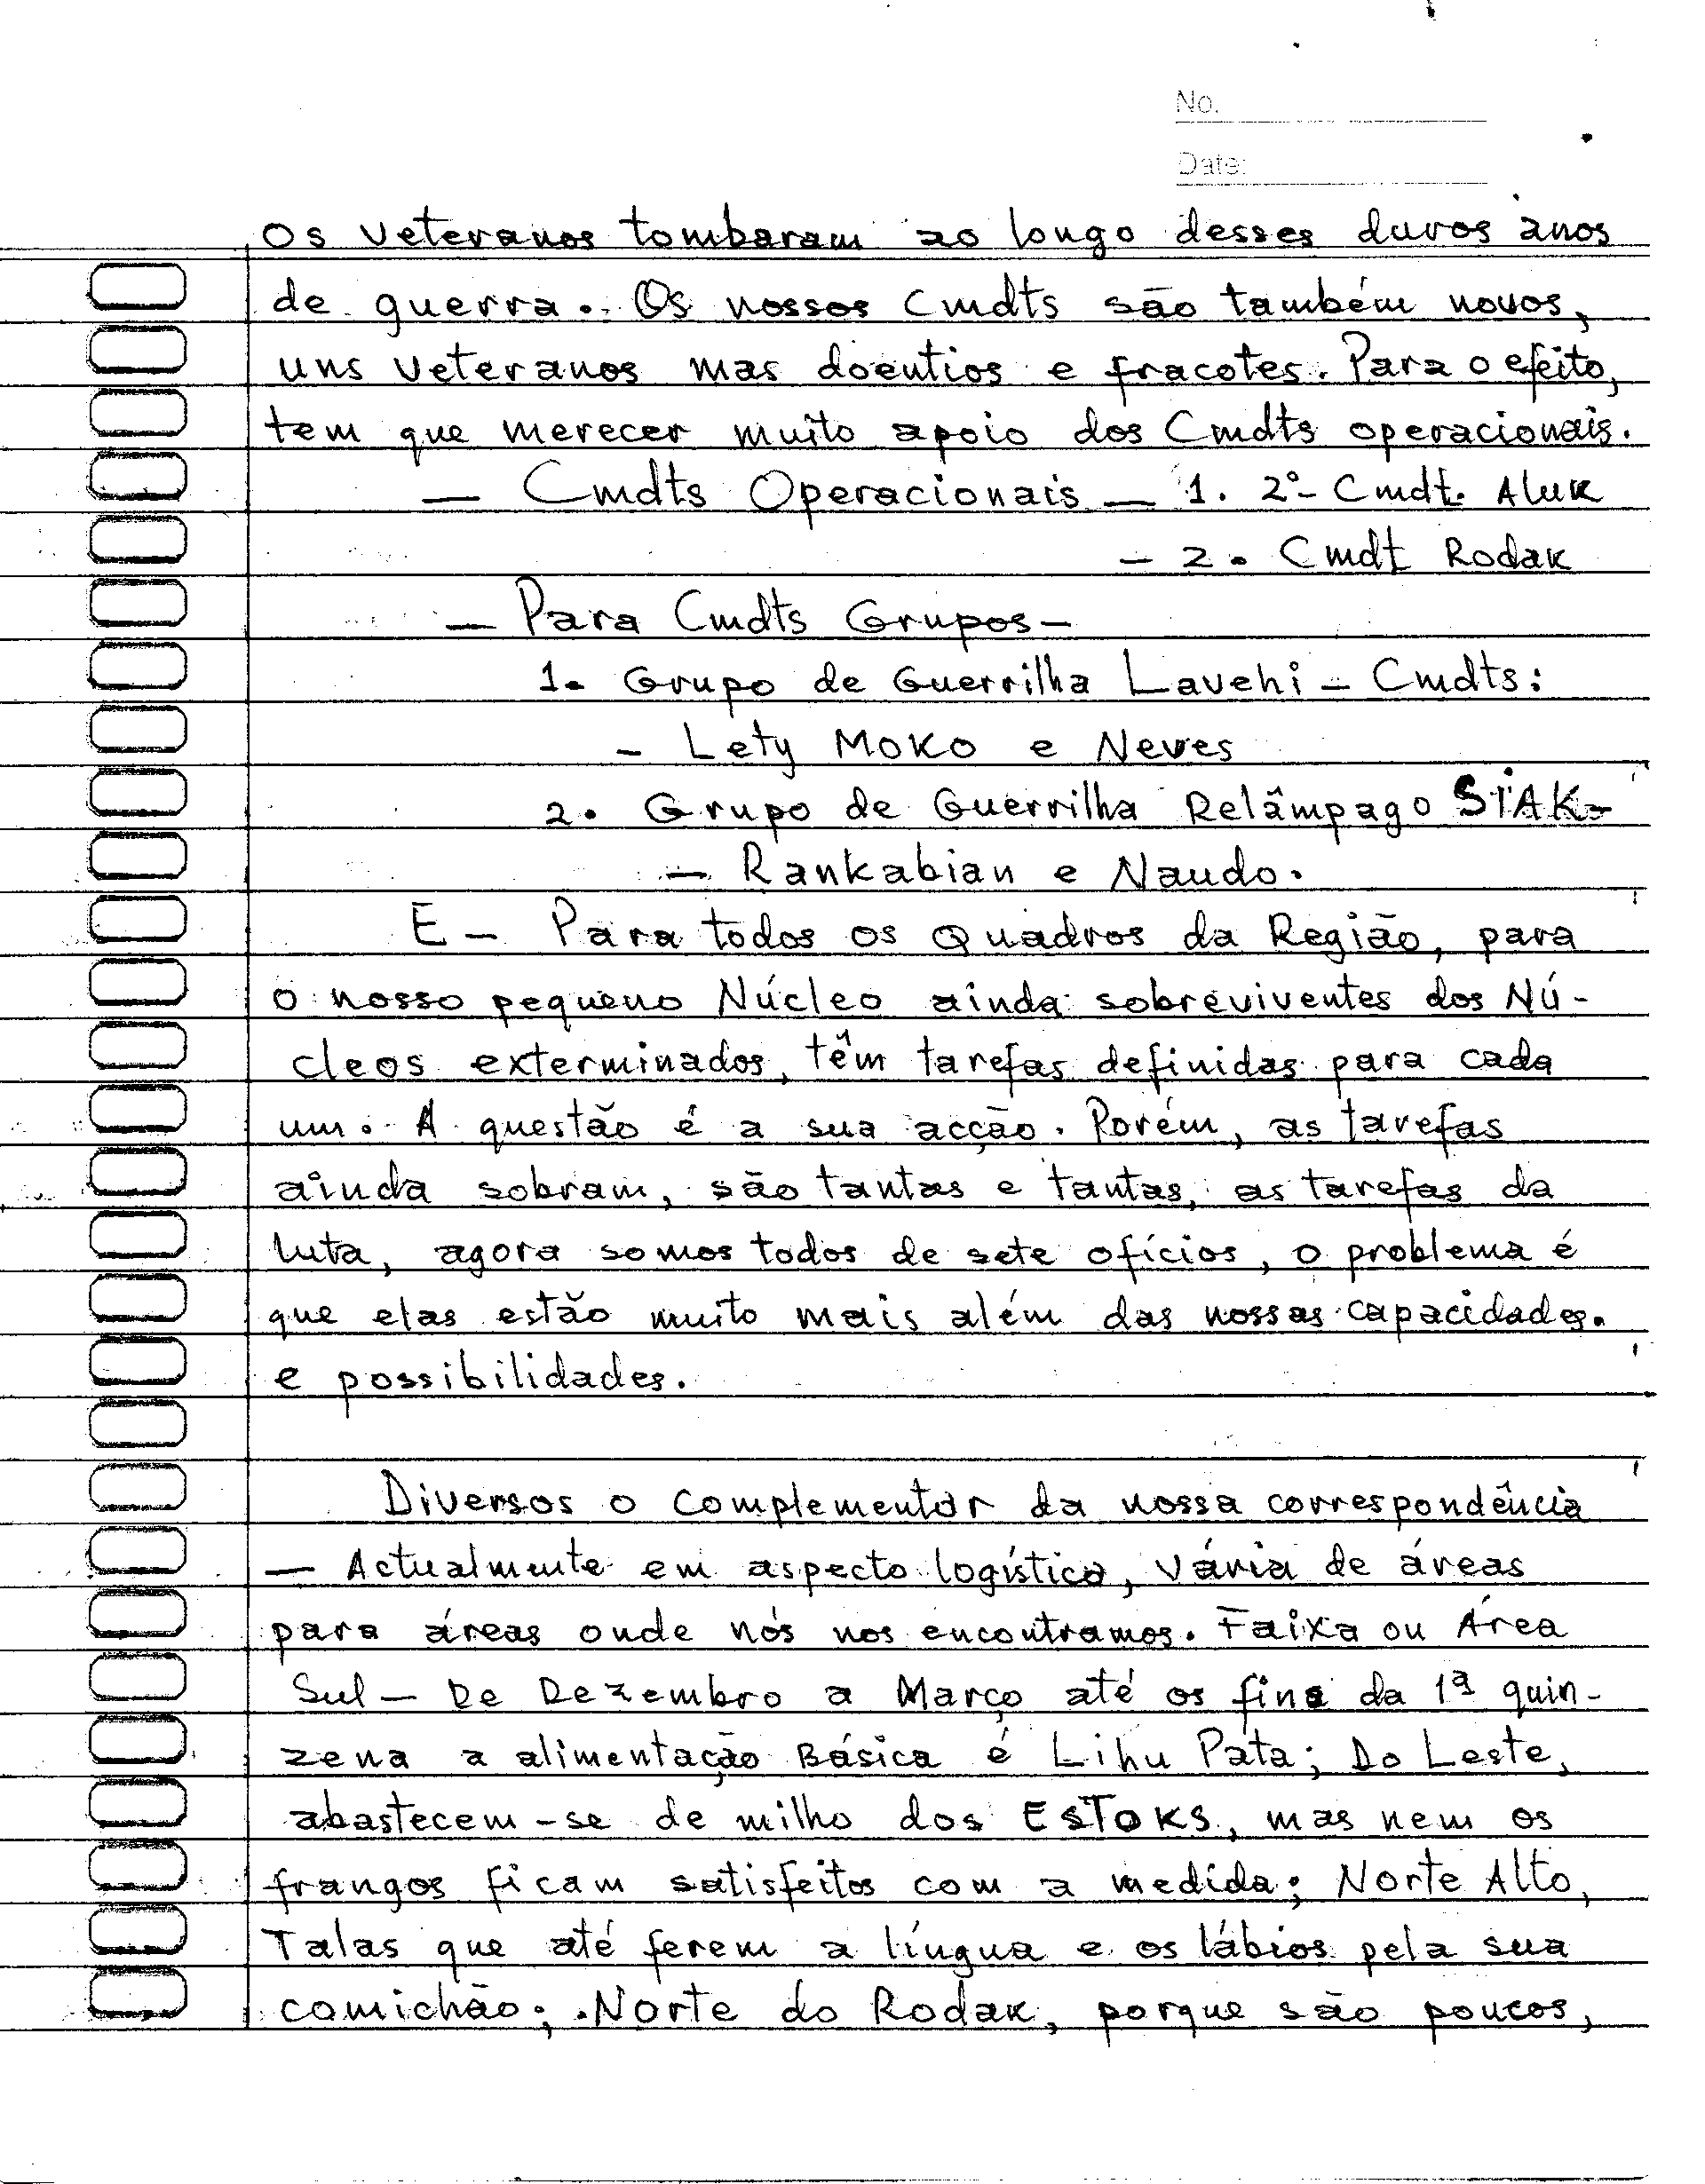 No.
Date:
Os veteranos tombaram ao longo desses duros anos
de guerra. Os nossos Cmdts são também novos,
uns veteranos mas doentios e fracotes. Para o efeito,
tem que merecer muito apoio dos Cmdts operacionais.
— Cmdts Operacionais — 1. 2º- Cmdt. Aluk
— 2. Cmdt Rodak
— Para Cmdts Grupos —
1. Grupo de Guerrilha Lavehi — Cmdts:
- Lety Moko e Neves
2. Grupo de Guerrilha Relâmpago SIAK-
— Rankabian e Naudo.
E — Para todos os Quadros da Região, para
o nosso pequeno Núcleo ainda sobreviventes dos Nú-
cleos exterminados, têm tarefas definidas para cada
um. A questão é a sua acção. Porém, as tarefas
ainda sobram, são tantas e tantas, as tarefas da
luta, agora somos todos de sete ofícios, o problema é
que elas estão muito mais além das nossas capacidades.
e possibilidades.
Diversos o complementar da nossa correspondência
— Actualmente em aspecto logístico, vária de áreas
para áreas onde nós nos encontramos. Faixa ou Área
Sul — De Dezembro a Março até os fins da 1ª quin-
zena a alimentação Básica é Lihu Pata; Do Leste,
abastecem-se de milho dos ESTOKS, mas nem os
frangos ficam satisfeitos com a medida; Norte Alto,
Talas que até ferem a língua e os lábios pela sua
comichão; Norte do Rodak, porque são poucos,